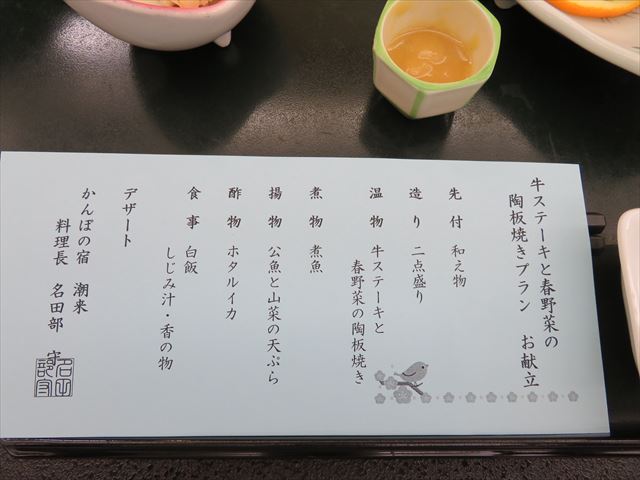 牛ステーキと春野菜の
陶板焼きプラン　お献立
先　付　和え物
造　り　二点盛り
温　物　牛ステーキと
春野菜の陶板焼き
煮　物　煮魚
揚　物　公魚と山菜の天ぷら
酢　物　ホタルイカ
食　事　白飯
しじみ汁・香の物
デザート
かんぽの宿　潮来
料理長　名田部